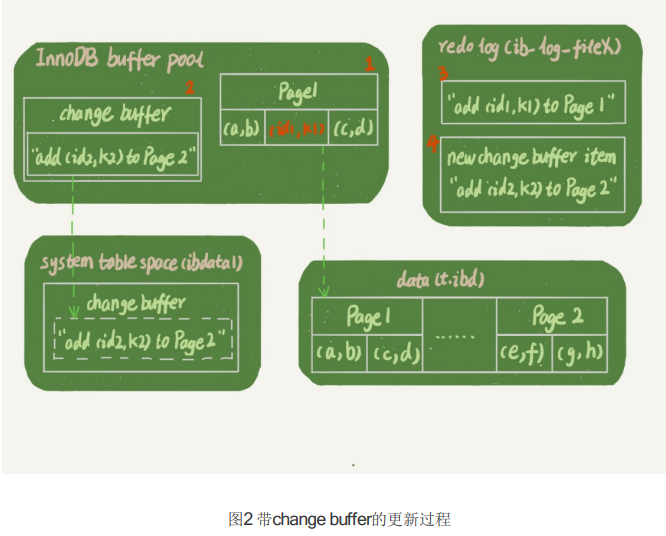 InnoDB buffer pool
2
change buffer
"add (id2, k2) to Page 2"
1
Page1
(a,b) (id1,k1) (c,d)
redo log (ib_log_fileX)
3
"add (id1, k1) to Page 1"
4
new change buffer item
"add (id2, k2) to Page 2"
system table space (ibdata1)
change buffer
"add (id2, k2) to Page 2"
data (t.ibd)
Page1 ...... Page 2
(a,b) (c,d) (e,f) (g,h)
图2 带change buffer的更新过程